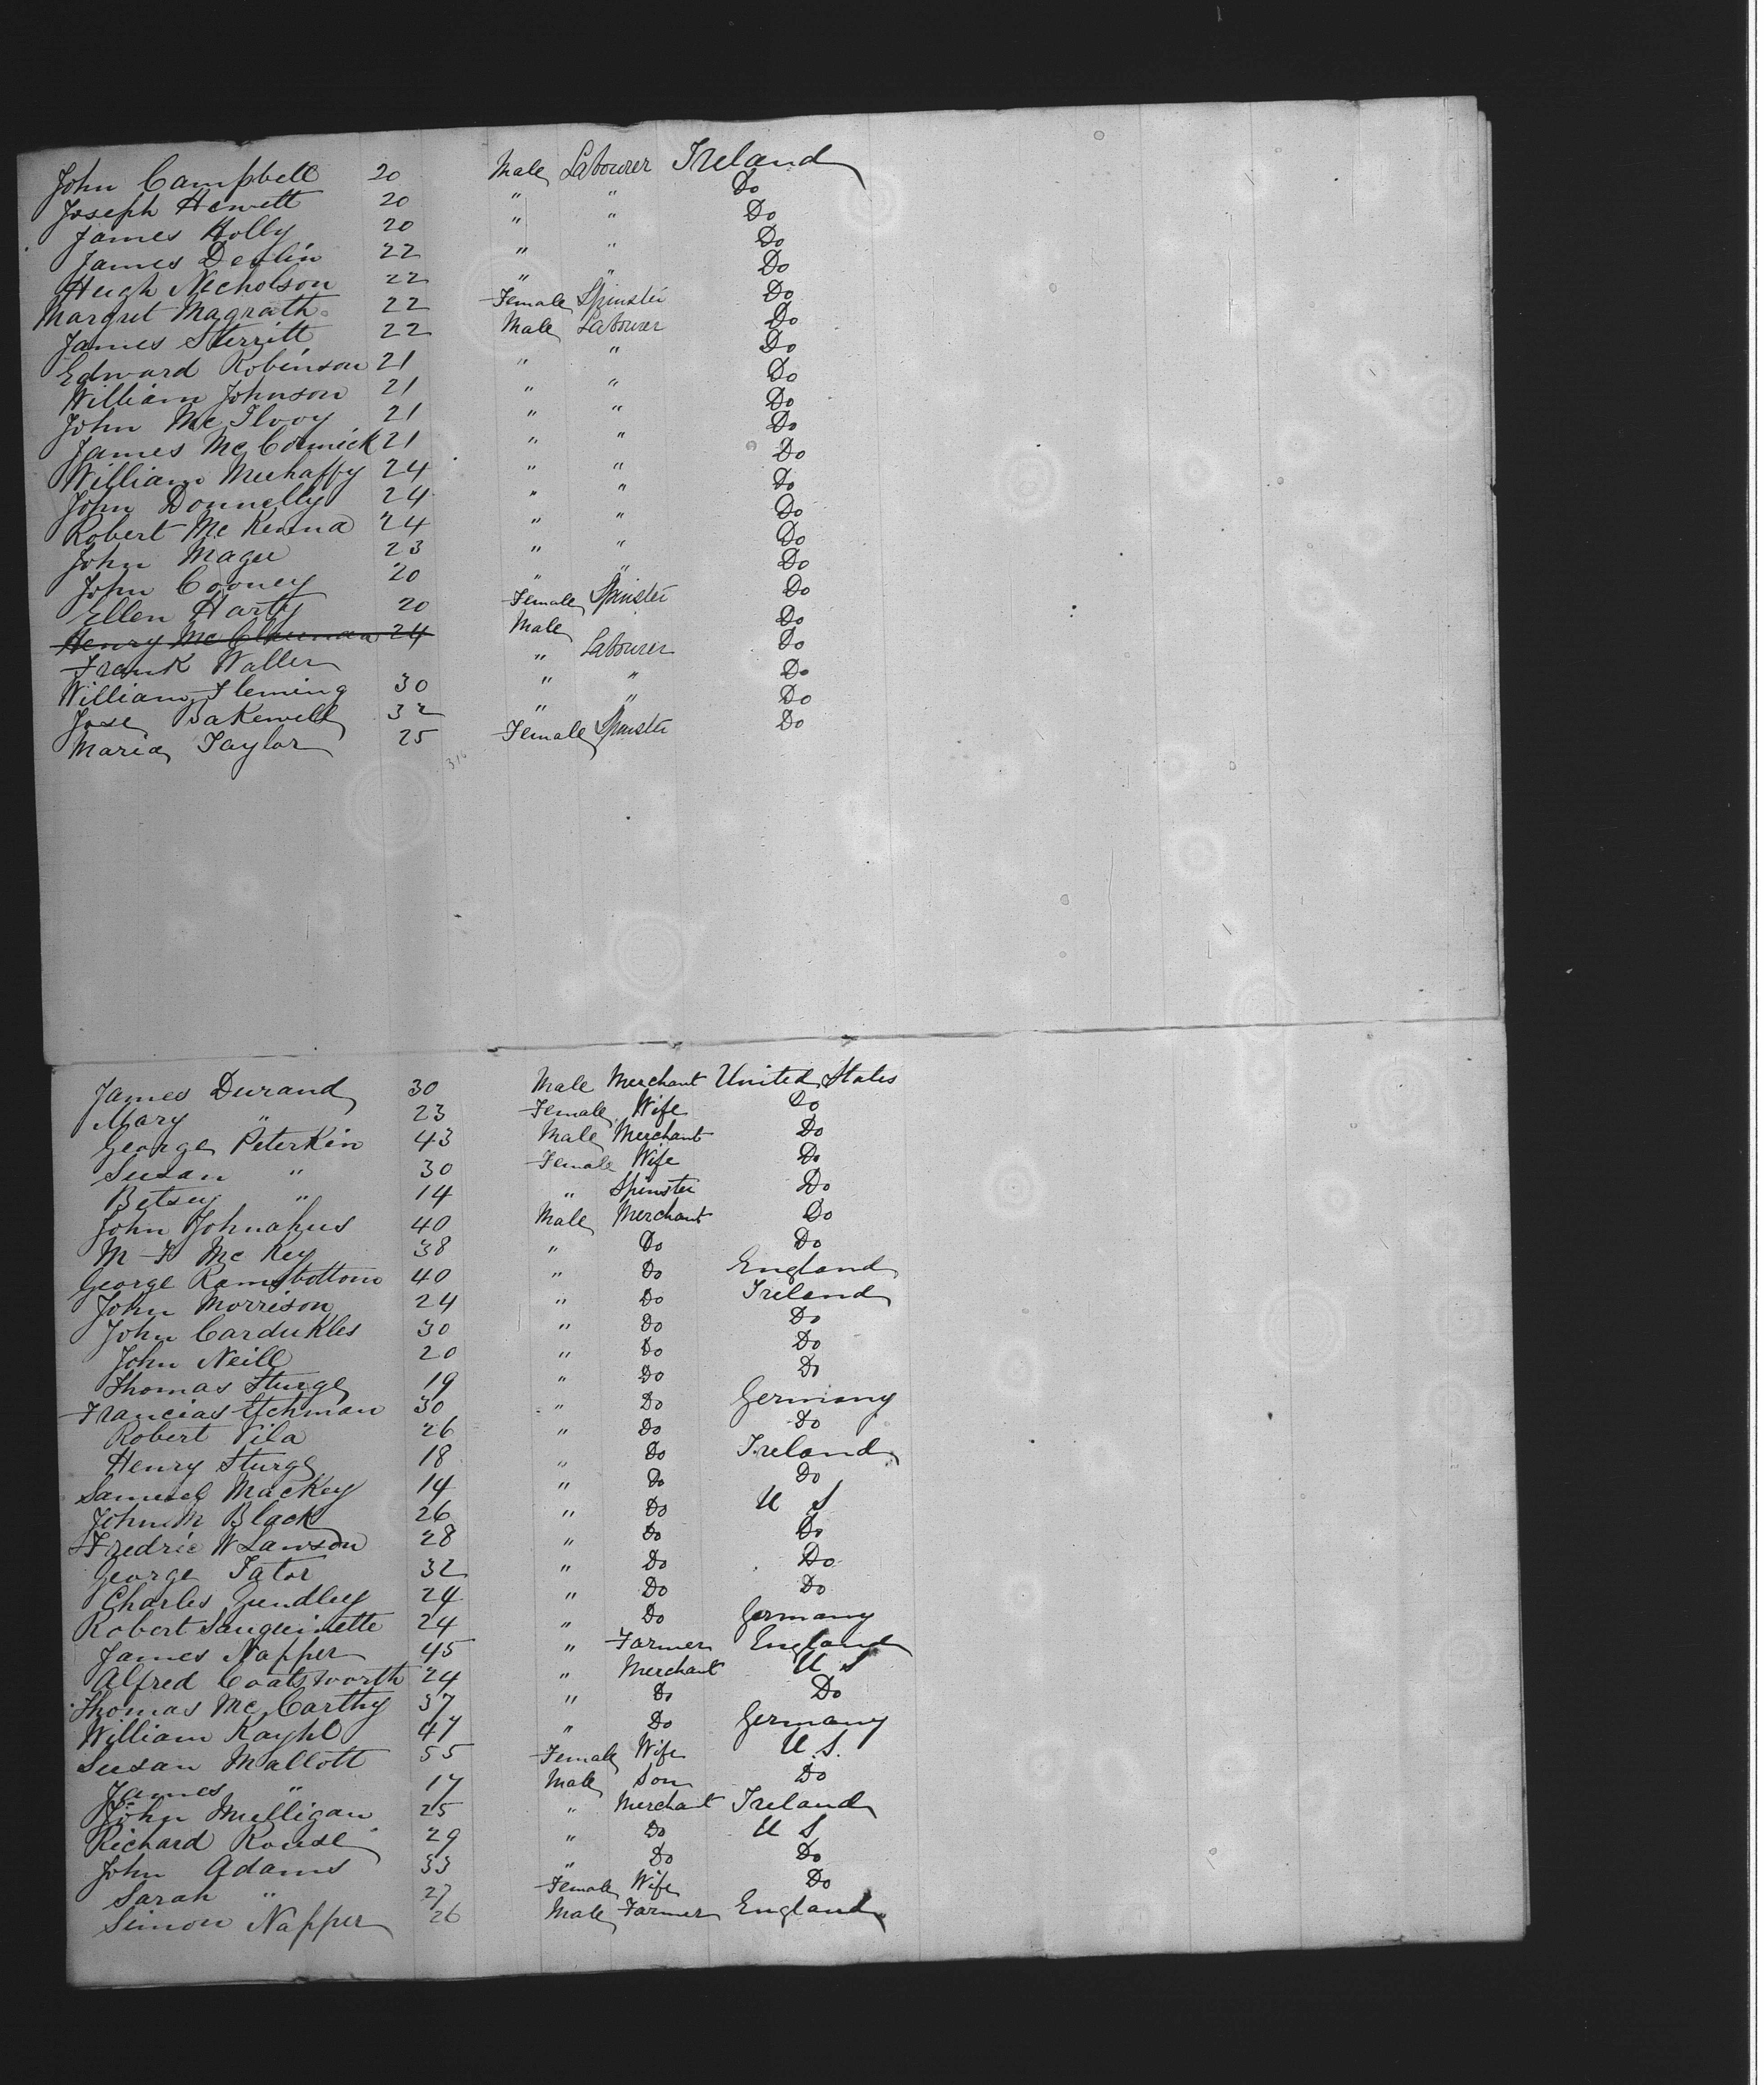 John Campbell 20 Male Labourer Ireland
Joseph Hewett 20 " " Do
James Holly 20 " " Do
James Devlin 22 " " Do
Hugh Nicholson 22 " " Do
Margret Magrath 22 Female Spinster Do
James Sterritt 22 Male Labourer Do
Edward Robinson 21 " " Do
William Johnson 21 " " Do
John Mc Ilvoy 21 " " Do
James Mc Cormick 21 " " Do
William Meehaffy 24 " " Do
John Donnelly 24 " " Do
Robert Mc Kenna 24 " " Do
John Magee 23 " " Do
John Cooney 20 " " Do
Ellen Harty 20 Female Spinster Do
Henry 24 Male Do
Frank Waller " Labourer Do
William Fleming 30 " " Do
Jose Bakewell 32 " " Do
Maria Taylor 25 Female Spinster Do
James Durand 30 Male Merchant United States
Mary " 23 Female Wife Do
George PeterKin 43 Male Merchant Do
Susan " 30 Female Wife Do
Betsey " 14 " Spinster Do
John 40 Male Merchant Do
Mc Key 38 " Do Do
George Ramsbottom 40 " Do England
John Morrison 24 " Do Ireland
John CarduKles 30 " Do Do
John Neill 20 " Do Do
Thomas Sturge 19 " Do Do
Francias 30 " Do Germany
Robert Vila 26 " Do Do
Henry Sturge 18 " Do Ireland
Samuel MacKey 14 " Do Do
John M Black 26 " Do U S
Fredric W Lawson 28 " Do Do
George Tator 32 " Do Do
Charles Gundley 24 " Do Do
Robert Sanguinette 24 " Do Germany
James Napper 45 " Farmer England
Alfred Coatsworth 24 " Merchant U S
Thomas Mc Carthy 37 " Do Do
William Kayhl 47 " Do Germany
Susan Mallott 55 Female Wife U.S.
James " 17 Male Son Do
John Mulligan 25 " Merchant Ireland
Richard Rouse 29 " Do U S
John Adams 33 " Do Do
Sarah " 27 Female Wife Do
Simon Napper 26 Male Farmer England